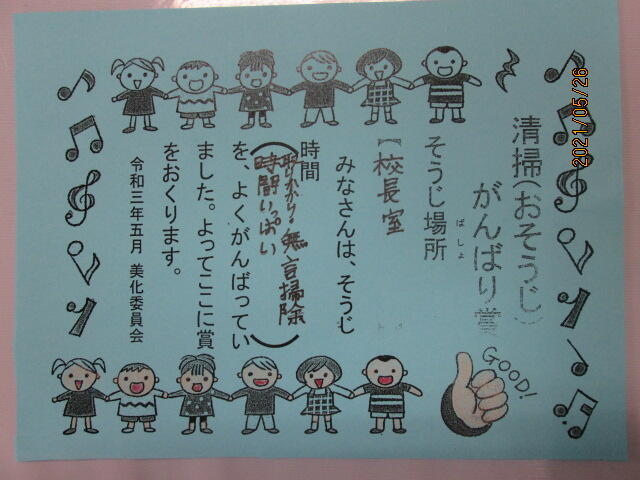 清掃(おそうじ)
がんばり賞
そうじ場所
ばしょ
【校長室
みなさんは、そうじ
時間
(取りかかり・無言掃除
時間いっぱい)
を、よくがんばってい
ました。よってここに賞
をおくります。
令和三年五月 美化委員会
GOOD!
2021/05/26